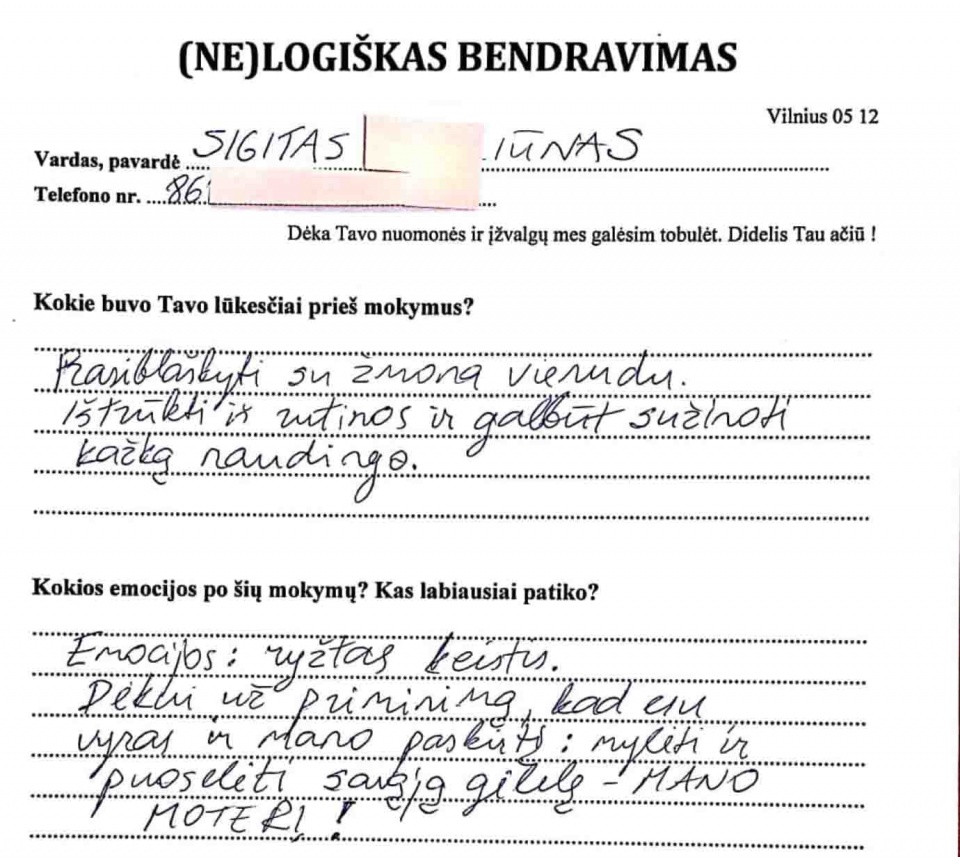 (NE)LOGIŠKAS BENDRAVIMAS
Vilnius 05 12
Vardas, pavardė ..... SIGITAS IŪNAS
Telefono nr. .... 86
Dėka Tavo nuomonės ir įžvalgų mes galėsim tobulėt. Didelis Tau ačiū !
Kokie buvo Tavo lūkesčiai prieš mokymus?
Prasiblaškyti su žmona vienudu.
Ištrūkti iš rutinos ir galbūt sužinoti
kažką naudingo.
Kokios emocijos po šių mokymų? Kas labiausiai patiko?
Emocijos: ryžtas keistis.
Dėkui už priminimą, kad esu
vyras ir mano paskirtį: mylėti ir
puoselėti savąją gėlelę - MANO
MOTERĮ!